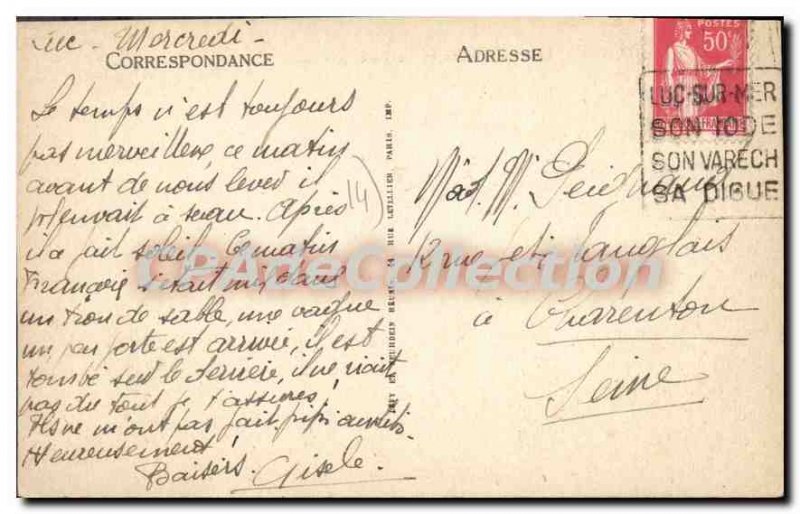 Luc - Mercredi -
CORRESPONDANCE
Le temps n'est toujours
pas merveilleux, ce matin
avant de nous lever il
pleuvait à seau. Après
il a fait soleil. Ce matin
François s'était mis dans
un trou de sable, une vague
un peu forte est arrivée, il est
tombé sur le derrière, il ne riait
pas du tout je t'assure !
Ils ne m'ont pas fait pipi au lit.
Heureusement !
Baisers. Gisele.
14
RUE LETELLIER PARIS. IMP.
ADRESSE
POSTES
50c
LUC-SUR-MER
SON IODE
SON VARECH
SA DIGUE
12 rue Langlais
à Charenton
Seine
CPArteCollection